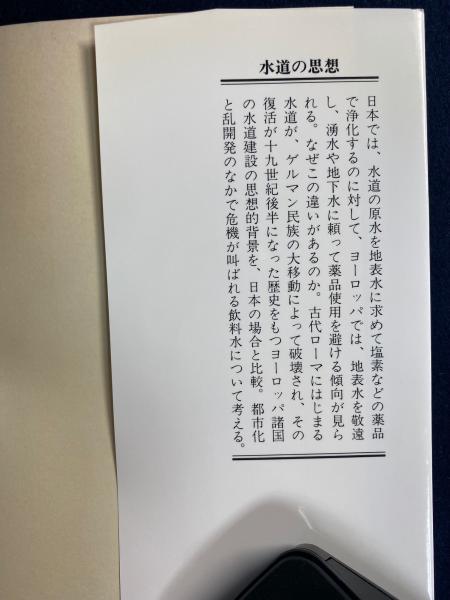 水道の思想
日本では、水道の原水を地表水に求めて塩素などの薬品
で浄化するのに対して、ヨーロッパでは、地表水を敬遠
し、湧水や地下水に頼って薬品使用を避ける傾向が見ら
れる。なぜこの違いがあるのか。古代ローマにはじまる
水道が、ゲルマン民族の大移動によって破壊され、その
復活が十九世紀後半になった歴史をもつヨーロッパ諸国
の水道建設の思想的背景を、日本の場合と比較。都市化
と乱開発のなかで危機が叫ばれる飲料水について考える。